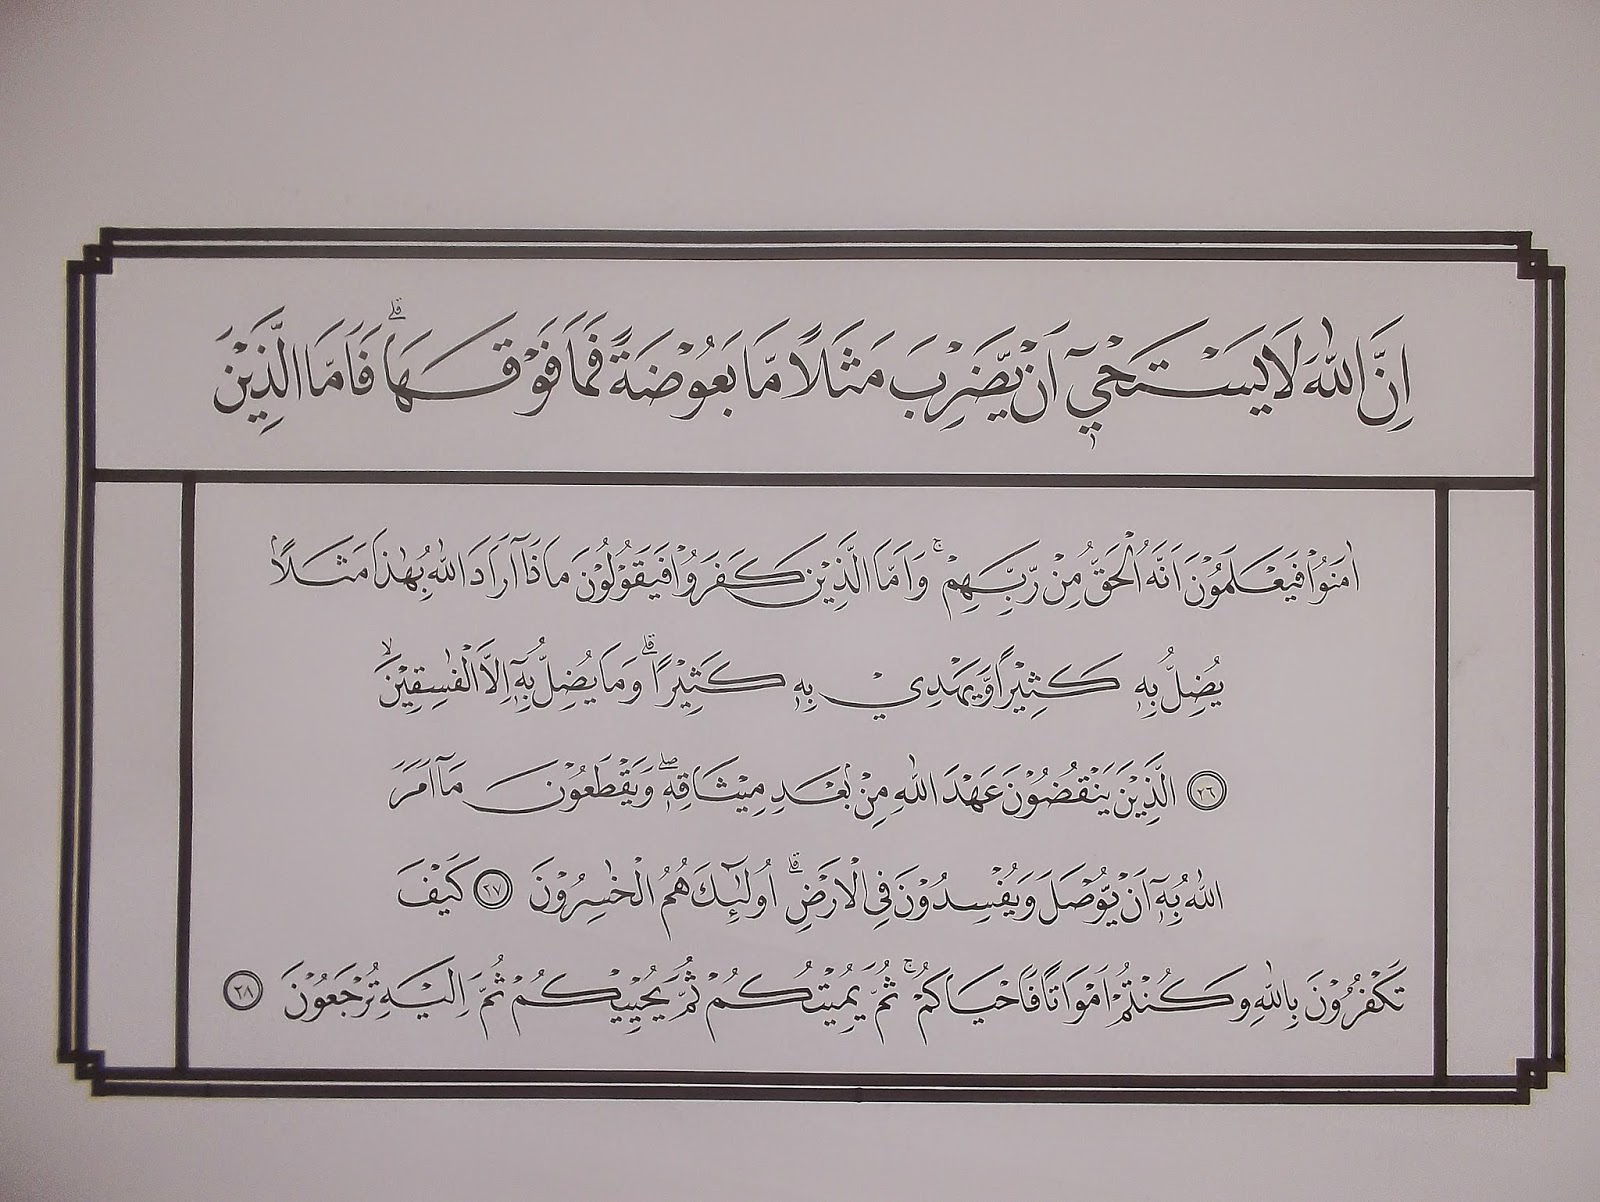 اِنَّ اللّٰهَ لَا يَسْتَحْيٖٓ اَنْ يَّضْرِبَ مَثَلًا مَّا بَعُوْضَةً فَمَا فَوْقَهَاۗ فَاَمَّا الَّذِيْنَ
اٰمَنُوْا فَيَعْلَمُوْنَ اَنَّهُ الْحَقُّ مِنْ رَّبِّهِمْۚ وَاَمَّا الَّذِيْنَ كَفَرُوْا فَيَقُوْلُوْنَ مَاذَآ اَرَادَ اللّٰهُ بِهٰذَا مَثَلًا
يُضِلُّ بِهٖ كَثِيْرًا وَّيَهْدِيْ بِهٖ كَثِيْرًاۗ وَمَا يُضِلُّ بِهٖٓ اِلَّا الْفٰسِقِيْنَۙ
٢٦ الَّذِيْنَ يَنْقُضُوْنَ عَهْدَ اللّٰهِ مِنْۢ بَعْدِ مِيْثَاقِهٖۖ وَيَقْطَعُوْنَ مَآ اَمَرَ
اللّٰهُ بِهٖٓ اَنْ يُّوْصَلَ وَيُفْسِدُوْنَ فِى الْاَرْضِۗ اُولٰۤىِٕكَ هُمُ الْخٰسِرُوْنَ ٢٧ كَيْفَ
تَكْفُرُوْنَ بِاللّٰهِ وَكُنْتُمْ اَمْوَاتًا فَاَحْيَاكُمْۚ ثُمَّ يُمِيْتُكُمْ ثُمَّ يُحْيِيْكُمْ ثُمَّ اِلَيْهِ تُرْجَعُوْنَ ٢٨